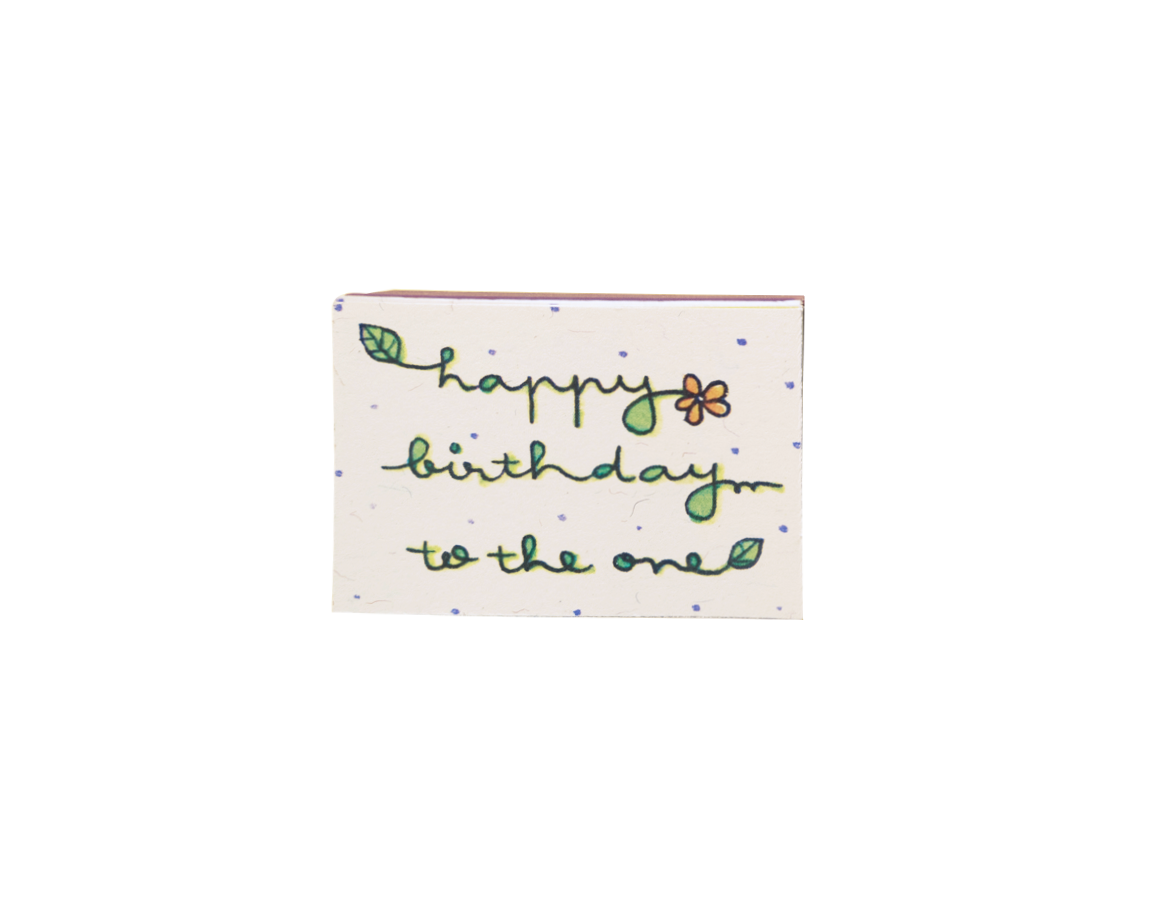 happy
birthday
to the one